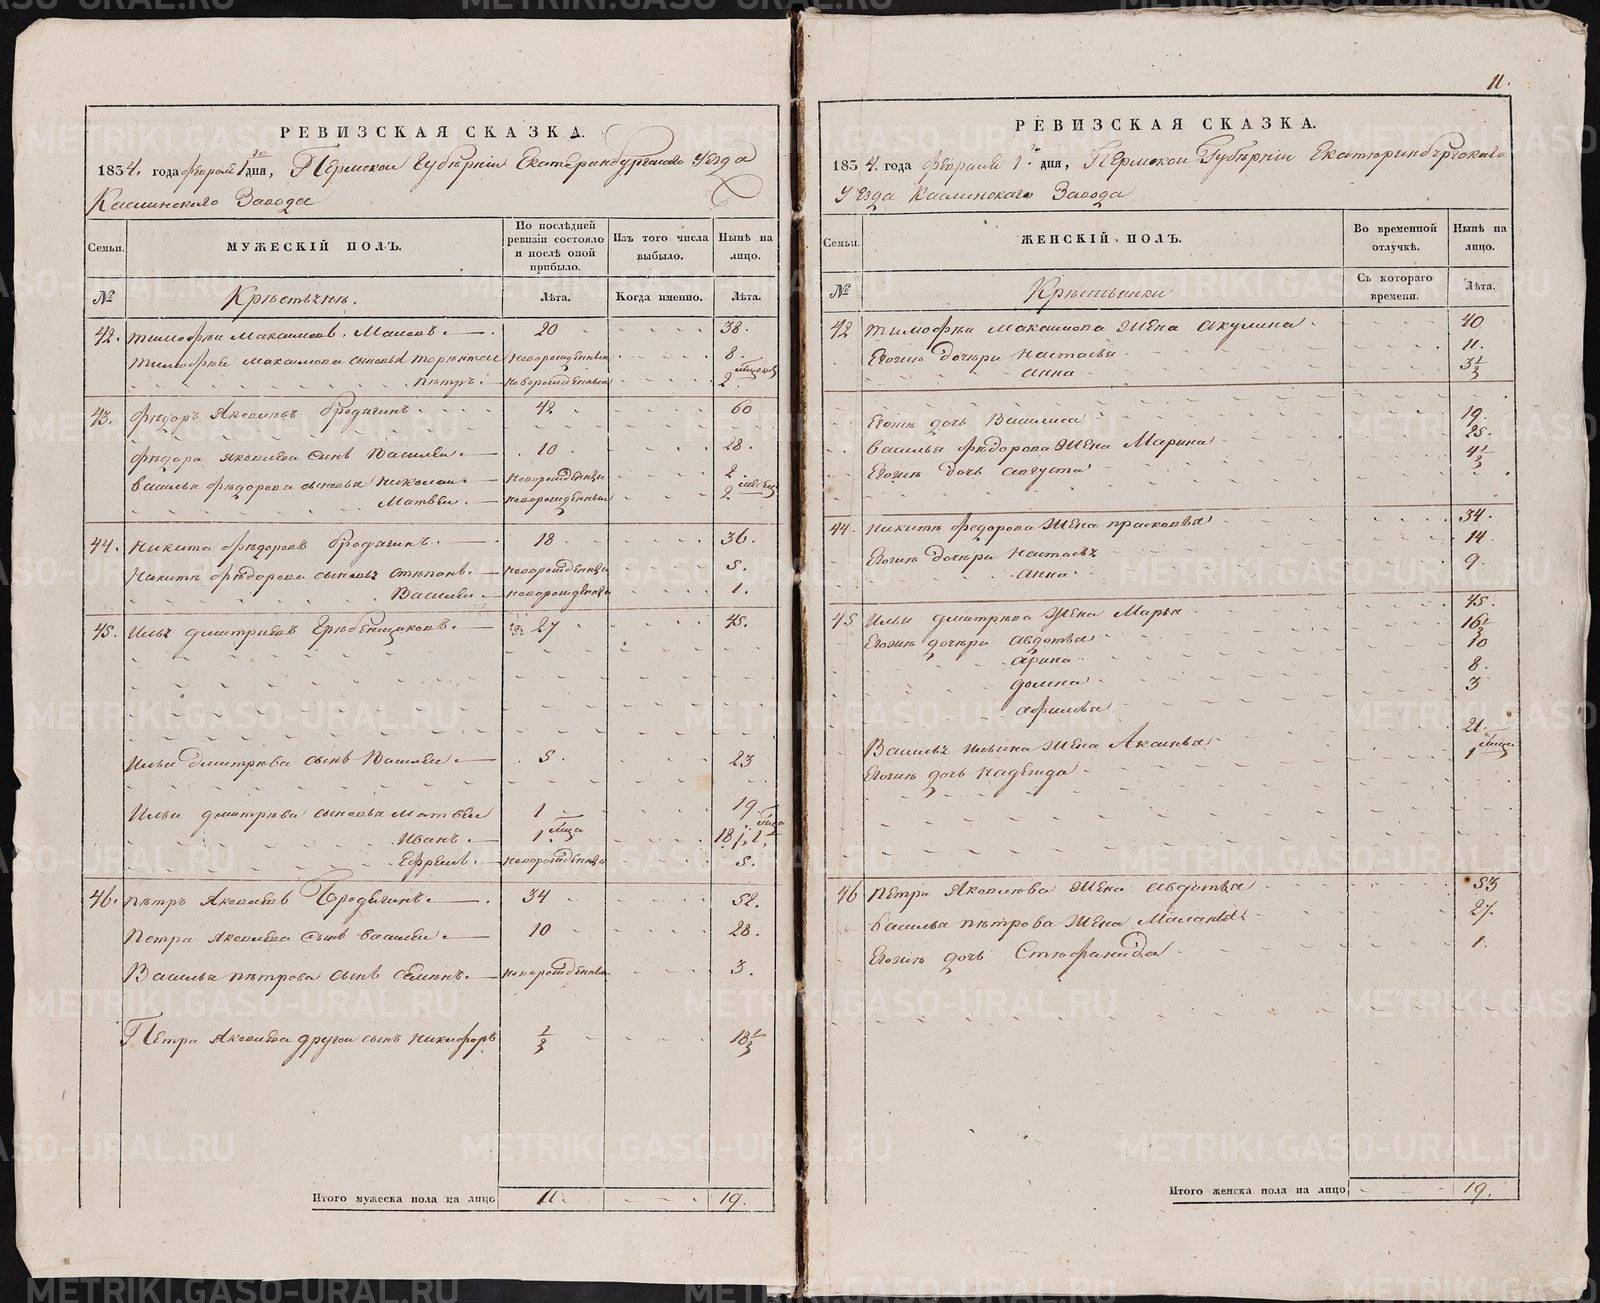 РЕВИЗСКАЯ СКАЗКА.
1834. года февраля 1го дня, Пермской Губерніи Екатеринбургскаго Уезда
Каслинскаго Завода
Семьи. МУЖЕСКІЙ ПОЛЪ. По послѣдней ревизіи состояло и послѣ оной прибыло. Изъ того числа выбыло. Нынѣ на лицо.
№ Крестьяне. Лѣта. Когда именно. Лѣта.
42. Тимофѣй Максимовъ 20 38.
Тимофѣя Максимова сыновья Терентей новорожденный 8.
Петръ новорожденный 2 мѣсяцовъ
43. Федоръ Яковлевъ Бродягинъ 42 60
Федора Яковлева сынъ Василей 10 28.
Василья Федорова сыновья Николай новорожденный 2.
Матвей новорожденный 2
44. Никита Федоровъ Бродягинъ 18 36.
Никиты Федорова сыновья Степанъ новорожденный 5.
Василей новорожденный 1.
45. Илья Дмитриевъ Гребенщиковъ 27 45.
Ильи Дмитрева сынъ Василей 5 23
Ильи Дмитрева сыновья Матвей 1 19
Иванъ 1 мѣсяца
Ефремъ новорожденный 5.
46. Петръ Яковлевъ Бродягинъ 34 52.
Петра Яковлева сынъ Василей 10 28.
Василья Петрова сынъ Семенъ новорожденный 3.
Петра Яковлева другой сынъ Никифоръ 1/2 18 1/2
Итого мужеска пола на лицо 11 19.
11.
РЕВИЗСКАЯ СКАЗКА.
1834. года февраля 1го дня, Пермской Губерніи Екатеринбургскаго
Уезда Каслинскаго Завода
Семьи. ЖЕНСКІЙ ПОЛЪ. Во временной отлучкѣ. Нынѣ на лицо.
№ Крестьянки Съ котораго времени. Лѣта.
42 Тимофея Максимова жена Акулина 40
Его же дочери Настасья 11.
Анна 3 1/2
Его же дочь Василиса 19.
Василья Федорова жена Марина 25.
Его же дочь Августа 4 1/2
44. Никиты Федорова жена Прасковья 34.
Его же дочери Настасья 14
Анна 9.
45 Ильи Дмитрева жена Марья 45.
Его же дочери Авдотья 16 1/2
Арина 10
Домна 8.
Афимья 3
Василья Ильина жена Аксинья 21.
Его же дочь Надежда 1 мѣсяца
46 Петра Яковлева жена Авдотья 53
Василья Петрова жена Маланья 27.
Его же дочь Стефанида 1.
Итого женска пола на лицо 19.
METRIKI.GASO-URAL.RU